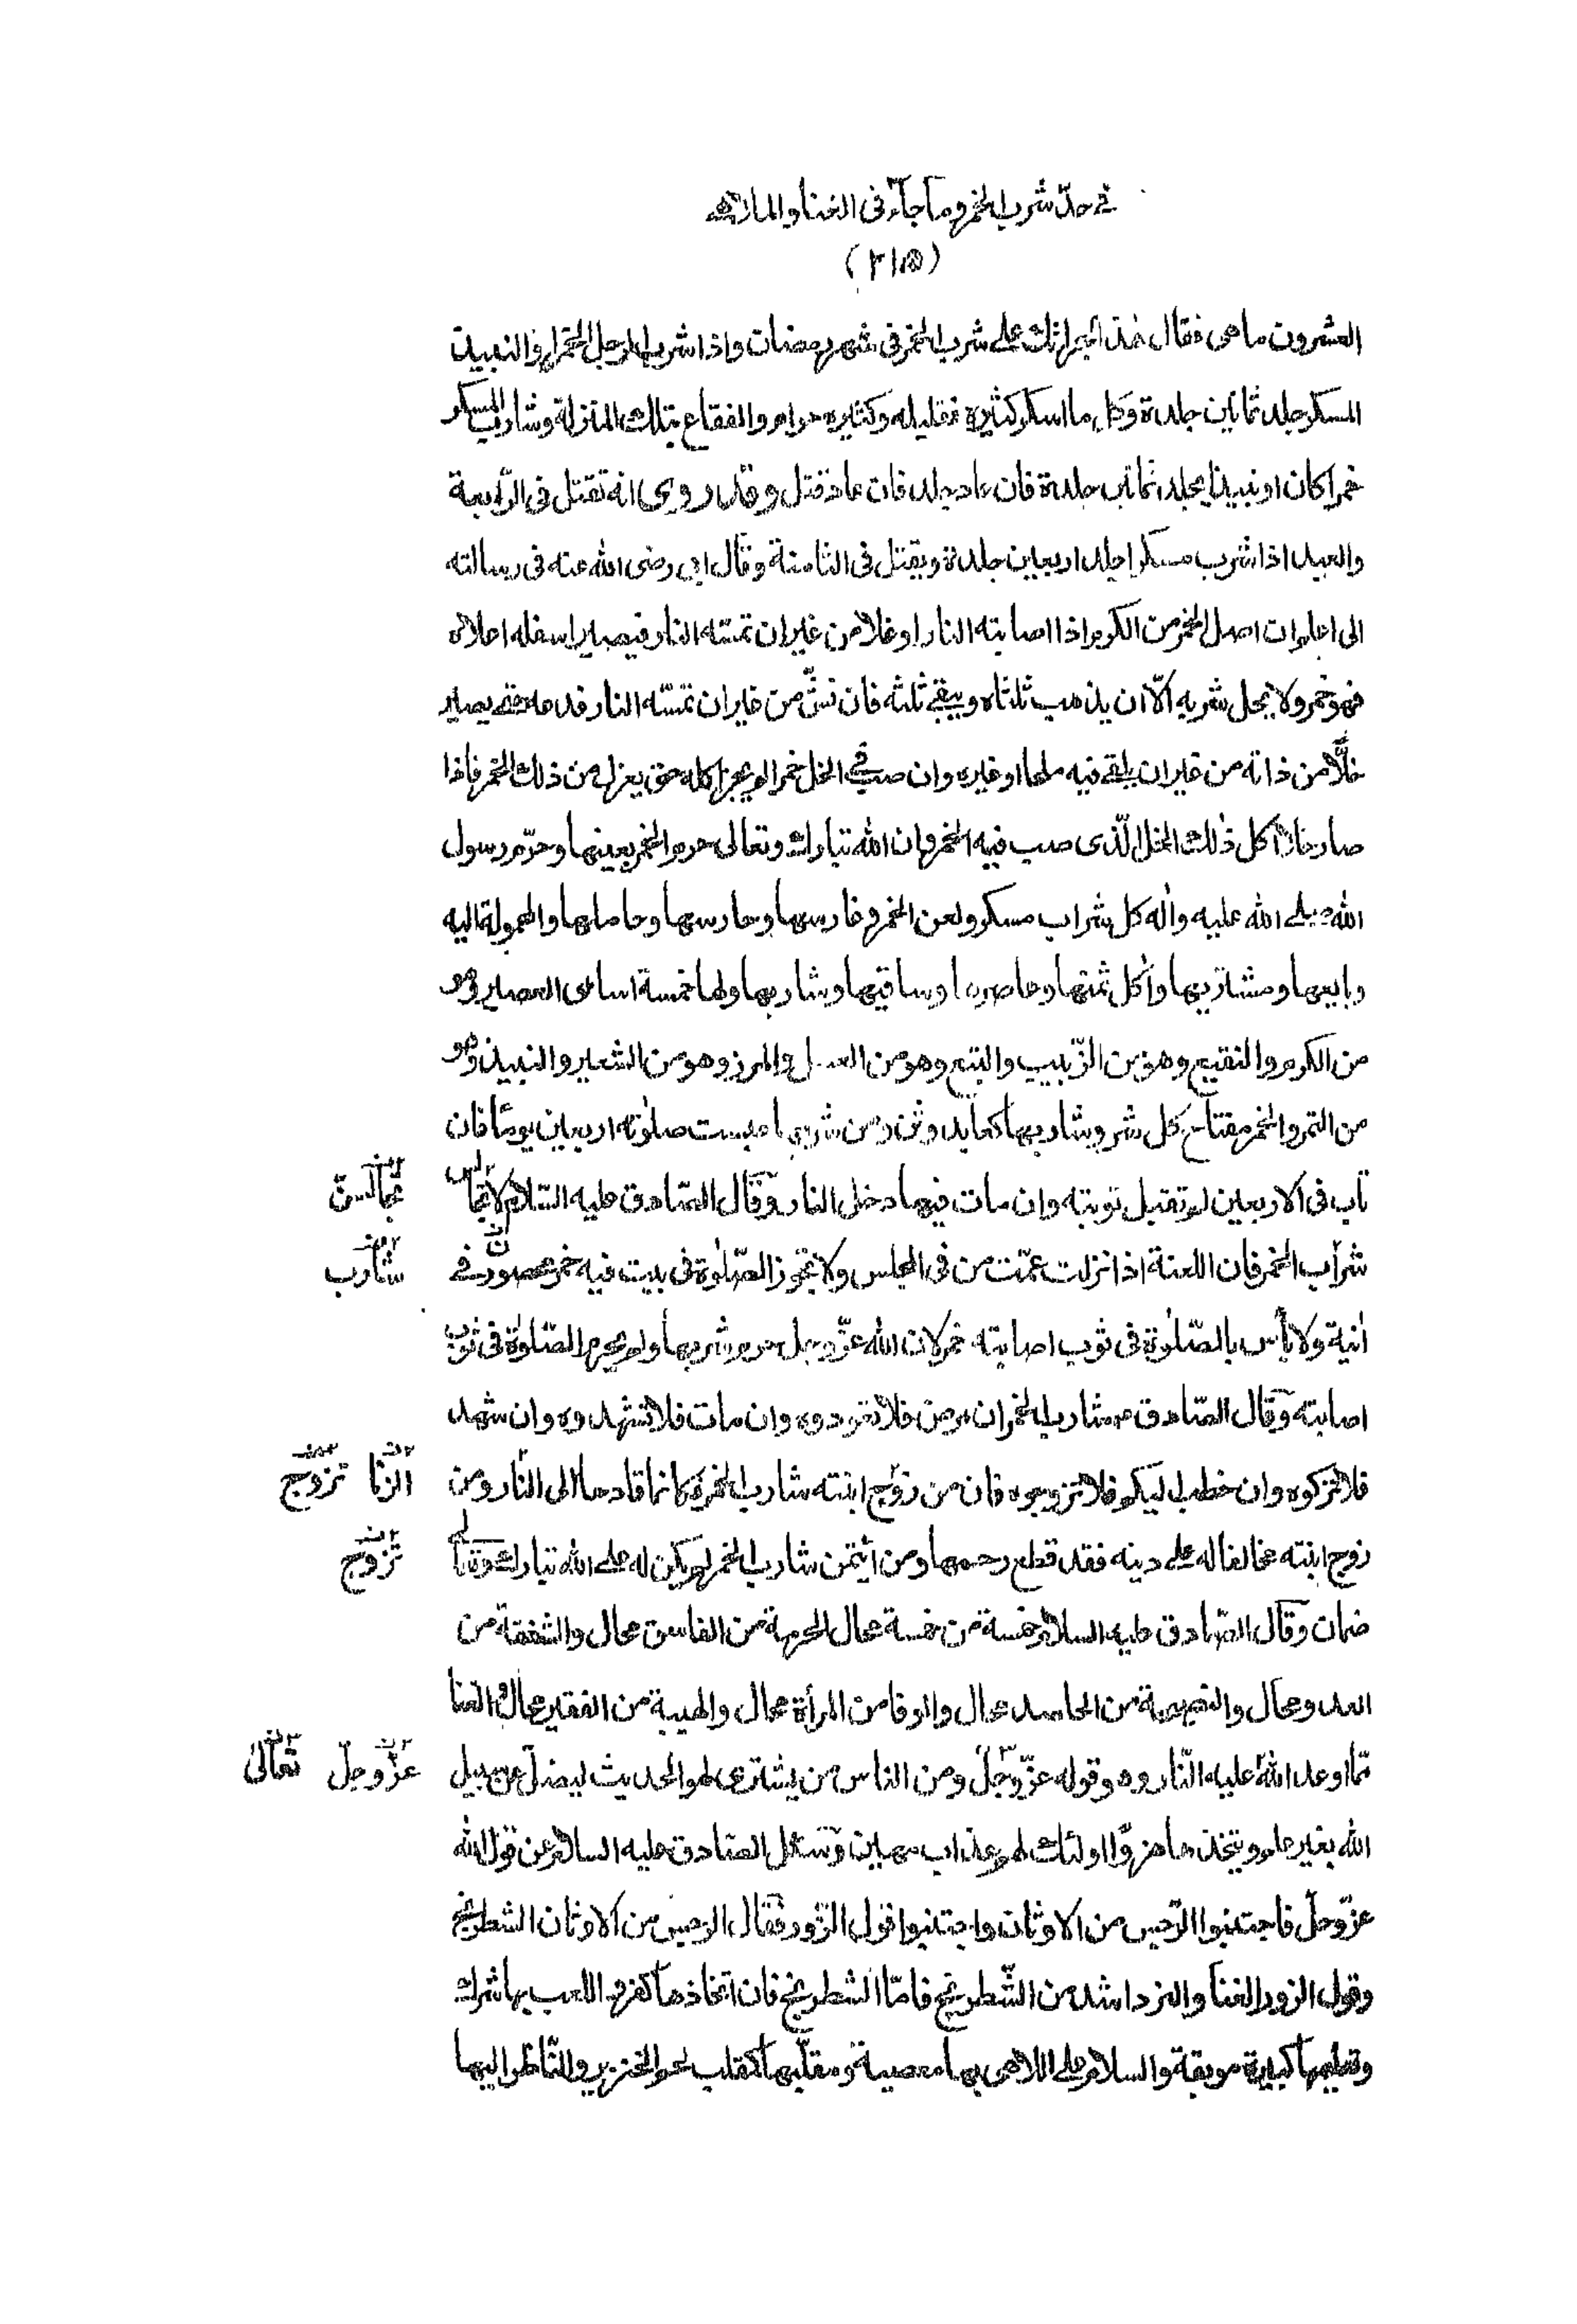 في حدّ شرب الخمر وما جاء فى الغنا والملاهي
(٢١٥)
العشرون ما هى فقال هذا لجرأتك على شرب الخمر فى شهر رمضان واذا شرب الرجل الخمر او النبيذ
المسكر جلد ثمانين جلدة وكل ما اسكر كثيره فقليله وكثيره حرام والفقاع بتلك المنزلة وشارب المسكر
خمرا كان او نبيذا يجلد ثمانين جلدة فان عاد جلد فان عاد قتل وقد روى انه يقتل فى الرّابعة
والعبد اذا شرب مسكرا جلد اربعين جلدة ويقتل فى الثامنة وقال ابى رضى الله عنه فى رسالته
الى اعلم ان اصل الخمر من الكرم اذا اصابته النار او غلا من غير ان تمسّه النار فيصير اسفله اعلاه
فهو خمر ولا يحل شربه الّا ان يذهب ثلثاه ويبقى ثلثه فان نشّ من غير ان تمسّه النار فدعه حتى يصير
خلّا من ذاته من غير ان يلقى فيه ملحا او غيره وان صب في الخل خمر لم يجز اكله حتى يعزل من ذلك الخمر فاذا
صار خلّا اكل ذلك الخل الّذى صب فيه الخمر وان الله تبارك وتعالى حرم الخمر بعينها وحرّم رسول
الله صلى الله عليه واله كل شراب مسكر ولعن الخمر وغارسها وحارسها وحاملها والمحمولة اليه
وبايعها ومشتريها واكل ثمنها وعاصرها وساقيها وشاربها ولها خمسة اسامى العصير وهو
من الكرم والنقيع وهو من الزّبيب والبتع وهو من العسل والمرز وهو من الشعير والنبيذ وهو
من التمر والخمر مفتاح كل شر وشاربها كعابد وثن ومن شربها حبست صلوته اربعين يوما فان
تاب فى الاربعين لم تقبل توبته وان مات فيها دخل النار وقال الصّادق عليه السّلام لا تجالس
شرّاب الخمر فان اللعنة اذا نزلت عمّت من فى المجلس ولا تجوز الصّلوة فى بيت فيه خمر محصور في
انية ولا بأس بالصّلوة فى ثوب اصابته خمر لان الله عزّ وجل حرم شربها ولم يحرم الصّلوة فى ثوب
اصابته وقال الصّادق ع شارب الخمر ان مرض فلا تعودوه وان مات فلا تشهدوه وان شهد
فلا تزكوه وان خطب اليكم فلا تزوجوه فان من زوّج ابنته شارب الخمر فكانما قادها الى النّار ومن
زوج ابنته مخالفا له على دينه فقد قطع رحمها ومن ائتمن شارب الخمر لم يكن له على الله تبارك وتعالى
ضمان وقال الصّادق عليه السلام خمسة من خمسة محال الحرمة من الفاسق محال والشفقة من
العدو محال والنصيحة من الحاسد محال والوفا من المرأة محال والهيبة من الفقير محال والغنا
ممّا وعد الله عليه النّار وهو قوله عزّ وجلّ ومن الناس من يشترى لهو الحديث ليضلّ عن سبيل
الله بغير علم ويتخذها هزوًا اولئك لهم عذاب مهين وسئل الصّادق عليه السلام عن قول الله
عزّ وجلّ فاجتنبوا الرّجس من الاوثان واجتنبوا قول الزّور فقال الرجس من الاوثان الشطرنج
وقول الزور الغنا والنرد اشد من الشّطرنج فامّا الشطرنج فان اتخاذها كفر واللعب بها شرك
وتعليمها كبيرة موبقة والسلام على اللاهى بها معصية ومقلّبها كمقلب لحم الخنزير والنّاظر اليها
تجالسنّ
شارب
الزنا تزوج
تزوج
عزّ وجلّ تعالى